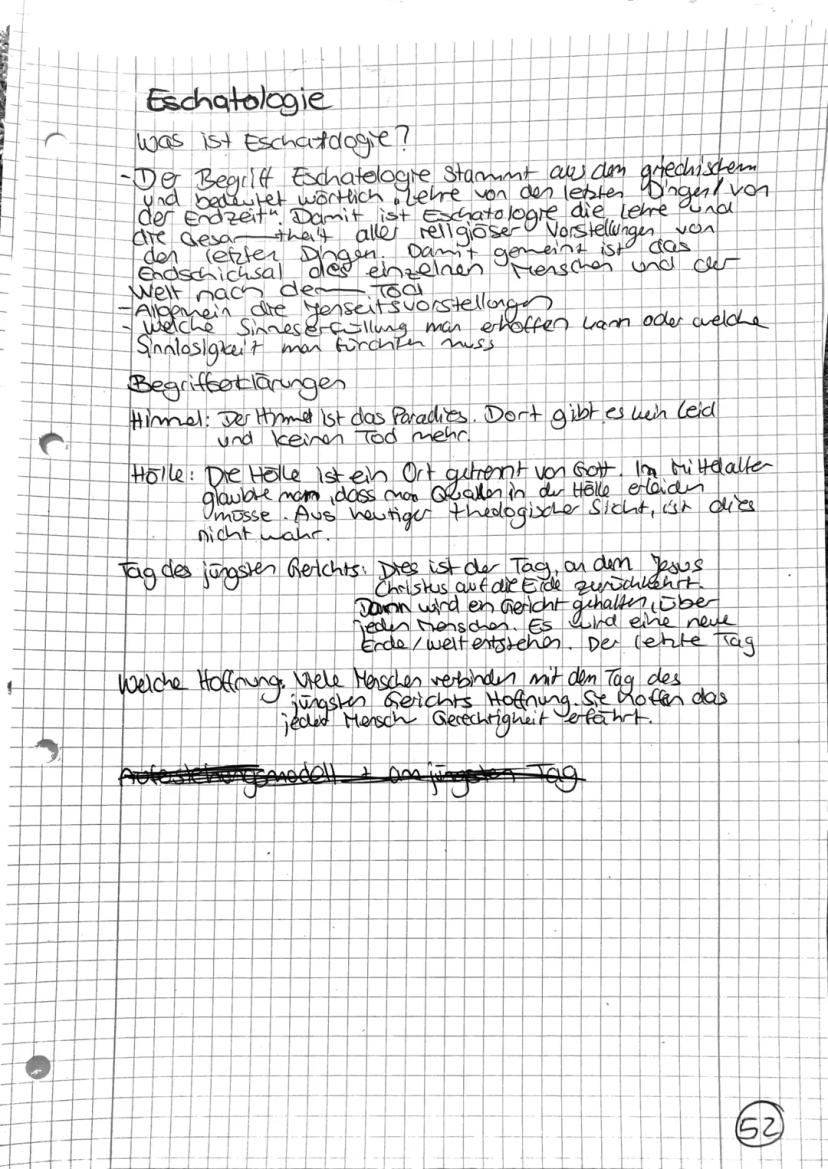 Eschatologie
Was ist Eschatologie?
- Der Begriff Eschatologie stammt aus dem griechischem
und bedeutet wörtlich „Lehre von den letzten Dingen/von
der Endzeit“. Damit ist Eschatologie die Lehre und
die Gesamtheit aller religiöser Vorstellungen von
den letzten Dingen. Damit gemeint ist das
Endschicksal des einzelnen Menschen und der
Welt nach dem Tod
- Allgemein die Jenseitsvorstellungen
- Welche Sinneserfüllung man erhoffen kann oder welche
Sinnlosigkeit man fürchten muss
Begriffserklärungen
Himmel: Der Himmel ist das Paradies. Dort gibt es kein Leid
und keinen Tod mehr.
Hölle: Die Hölle ist ein Ort getrennt von Gott. Im Mittelalter
glaubte man, dass man Qualen in der Hölle erleiden
müsse. Aus heutiger theologischer Sicht, ist dies
nicht wahr.
Tag des jüngsten Gerichts: Dies ist der Tag, an dem Jesus
Christus auf die Erde zurückkehrt.
Dann wird ein Gericht gehalten, über
jeden Menschen. Es wird eine neue
Erde/Welt entstehen. Der letzte Tag
Welche Hoffnung: Viele Menschen verbinden mit dem Tag des
jüngsten Gerichts Hoffnung. Sie hoffen das
jeder Mensch Gerechtigkeit erfährt.
Auferstehungsmodell + am jüngsten Tag
52